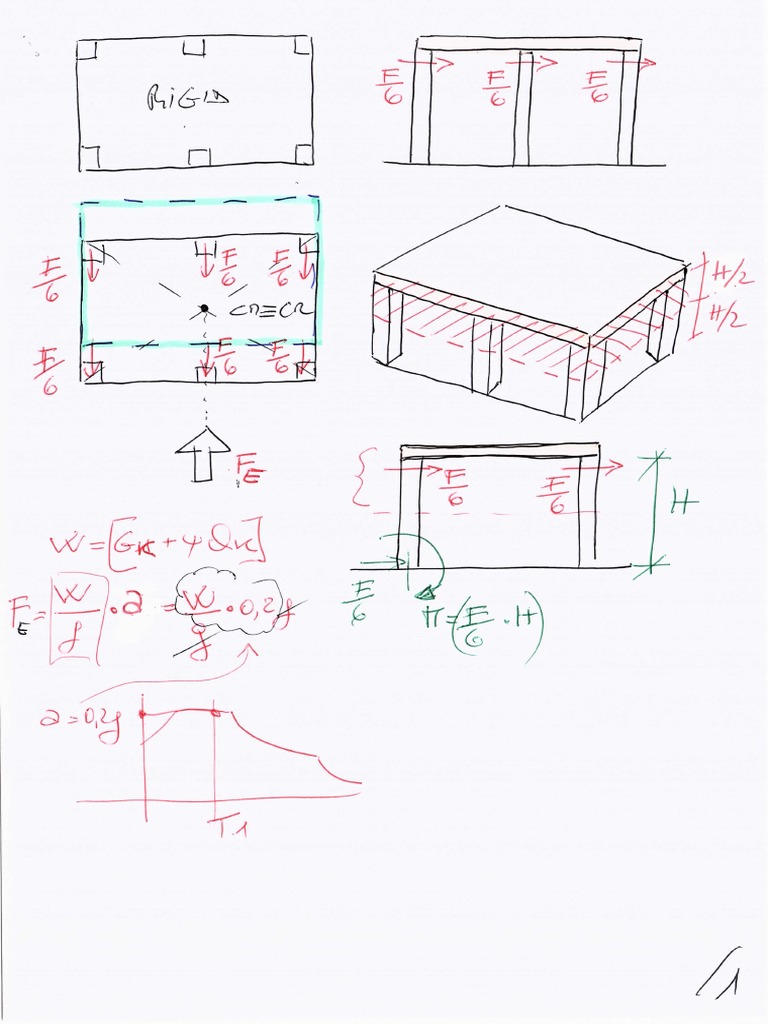 RIGID
F/6 F/6 F/6
F/6 F/6 F/6
CM≡CR
F/6 F/6 F/6
H/2
H/2
F_E
F/6 F/6
H
W=[GK+ψQK]
F_E = W/g · a = W/g · 0,2g
F/6
M=(F/6 · H)
a=0,2g
T1
1